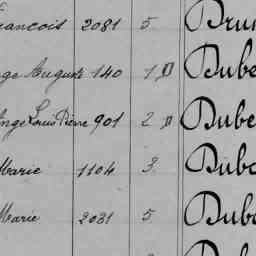 rancois 2081 5 Brun
ge Auguste 140 1 D Dube
Ange Louis Pierre 901 2 D Dube
Marie 1104 3 Dubo
Marie 2031 5 Dubo